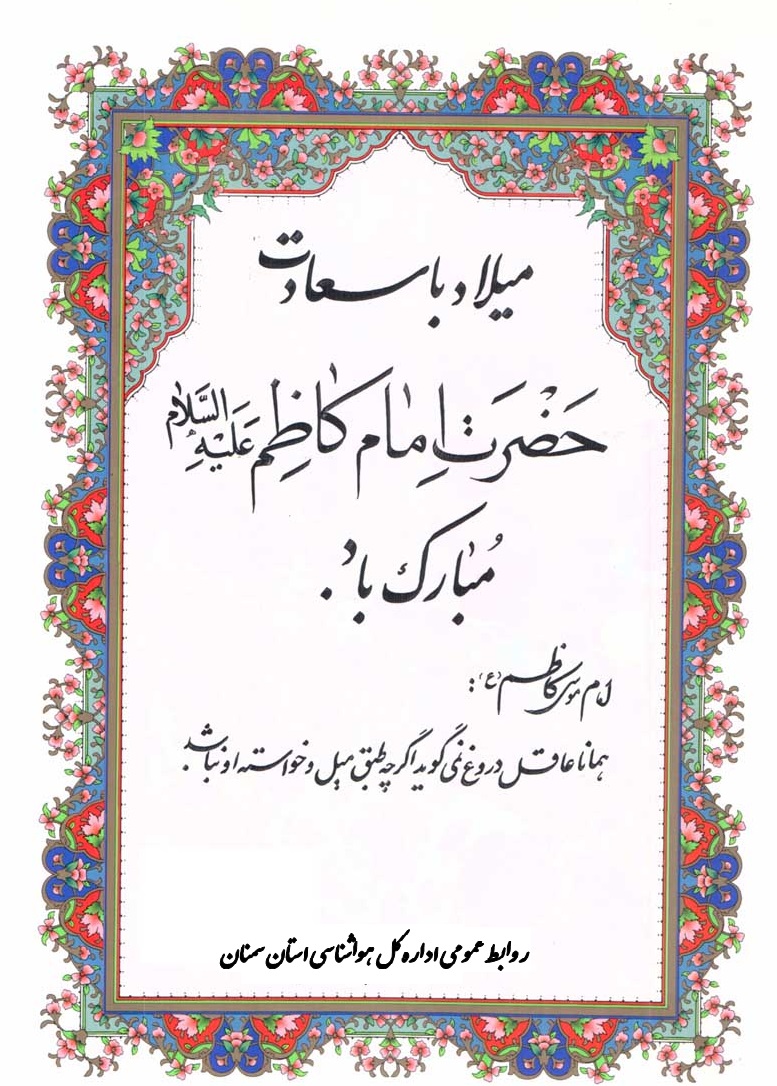 میلاد با سعادت
حَضْرَت اِمام کاظِم عَلَیْهِ السَّلام
مُبارک باد.
امام موسی کاظم (ع):
همانا عاقل دروغ نمی گوید اگرچه طبق میل و خواسته او نباشد.
روابط عمومی اداره کل هواشناسی استان سمنان